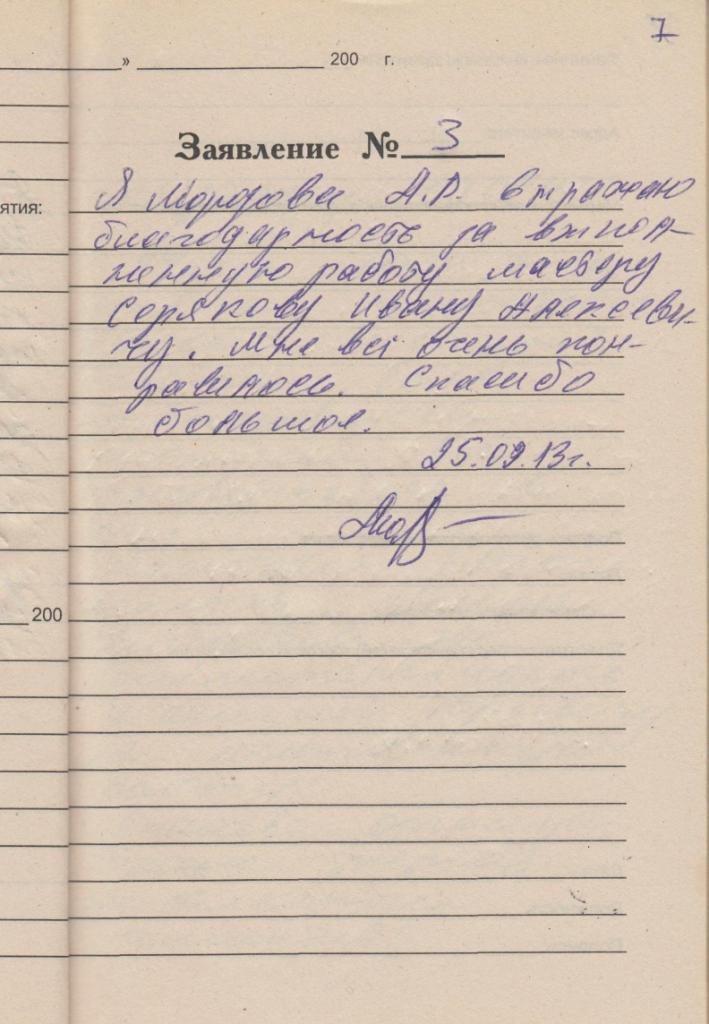 7
» 200 г.
Заявление № 3
ятия:
Я Морозова А.Р. выражаю
благодарность за выпол-
ненную работу мастеру
Серякову Ивану Алексеви-
чу. Мне всё очень пон-
равилось. Спасибо
большое.
25.09.13г.
200